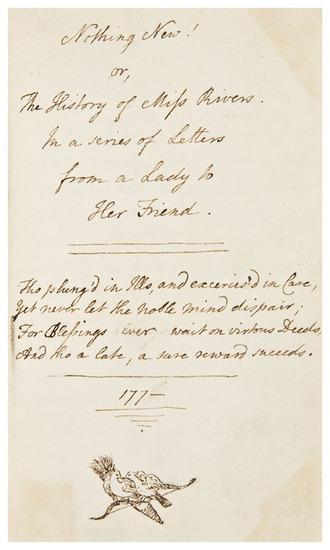 Nothing New!
or,
The History of Miſs Rivers.
In a series of Letters
from a Lady to
Her Friend.
Tho plung'd in Ills, and excercis'd in Care,
Yet never let the noble mind dispair;
For Bleſsings ever wait on virtous Deeds,
And tho a late, a sure reward succeeds.
177–